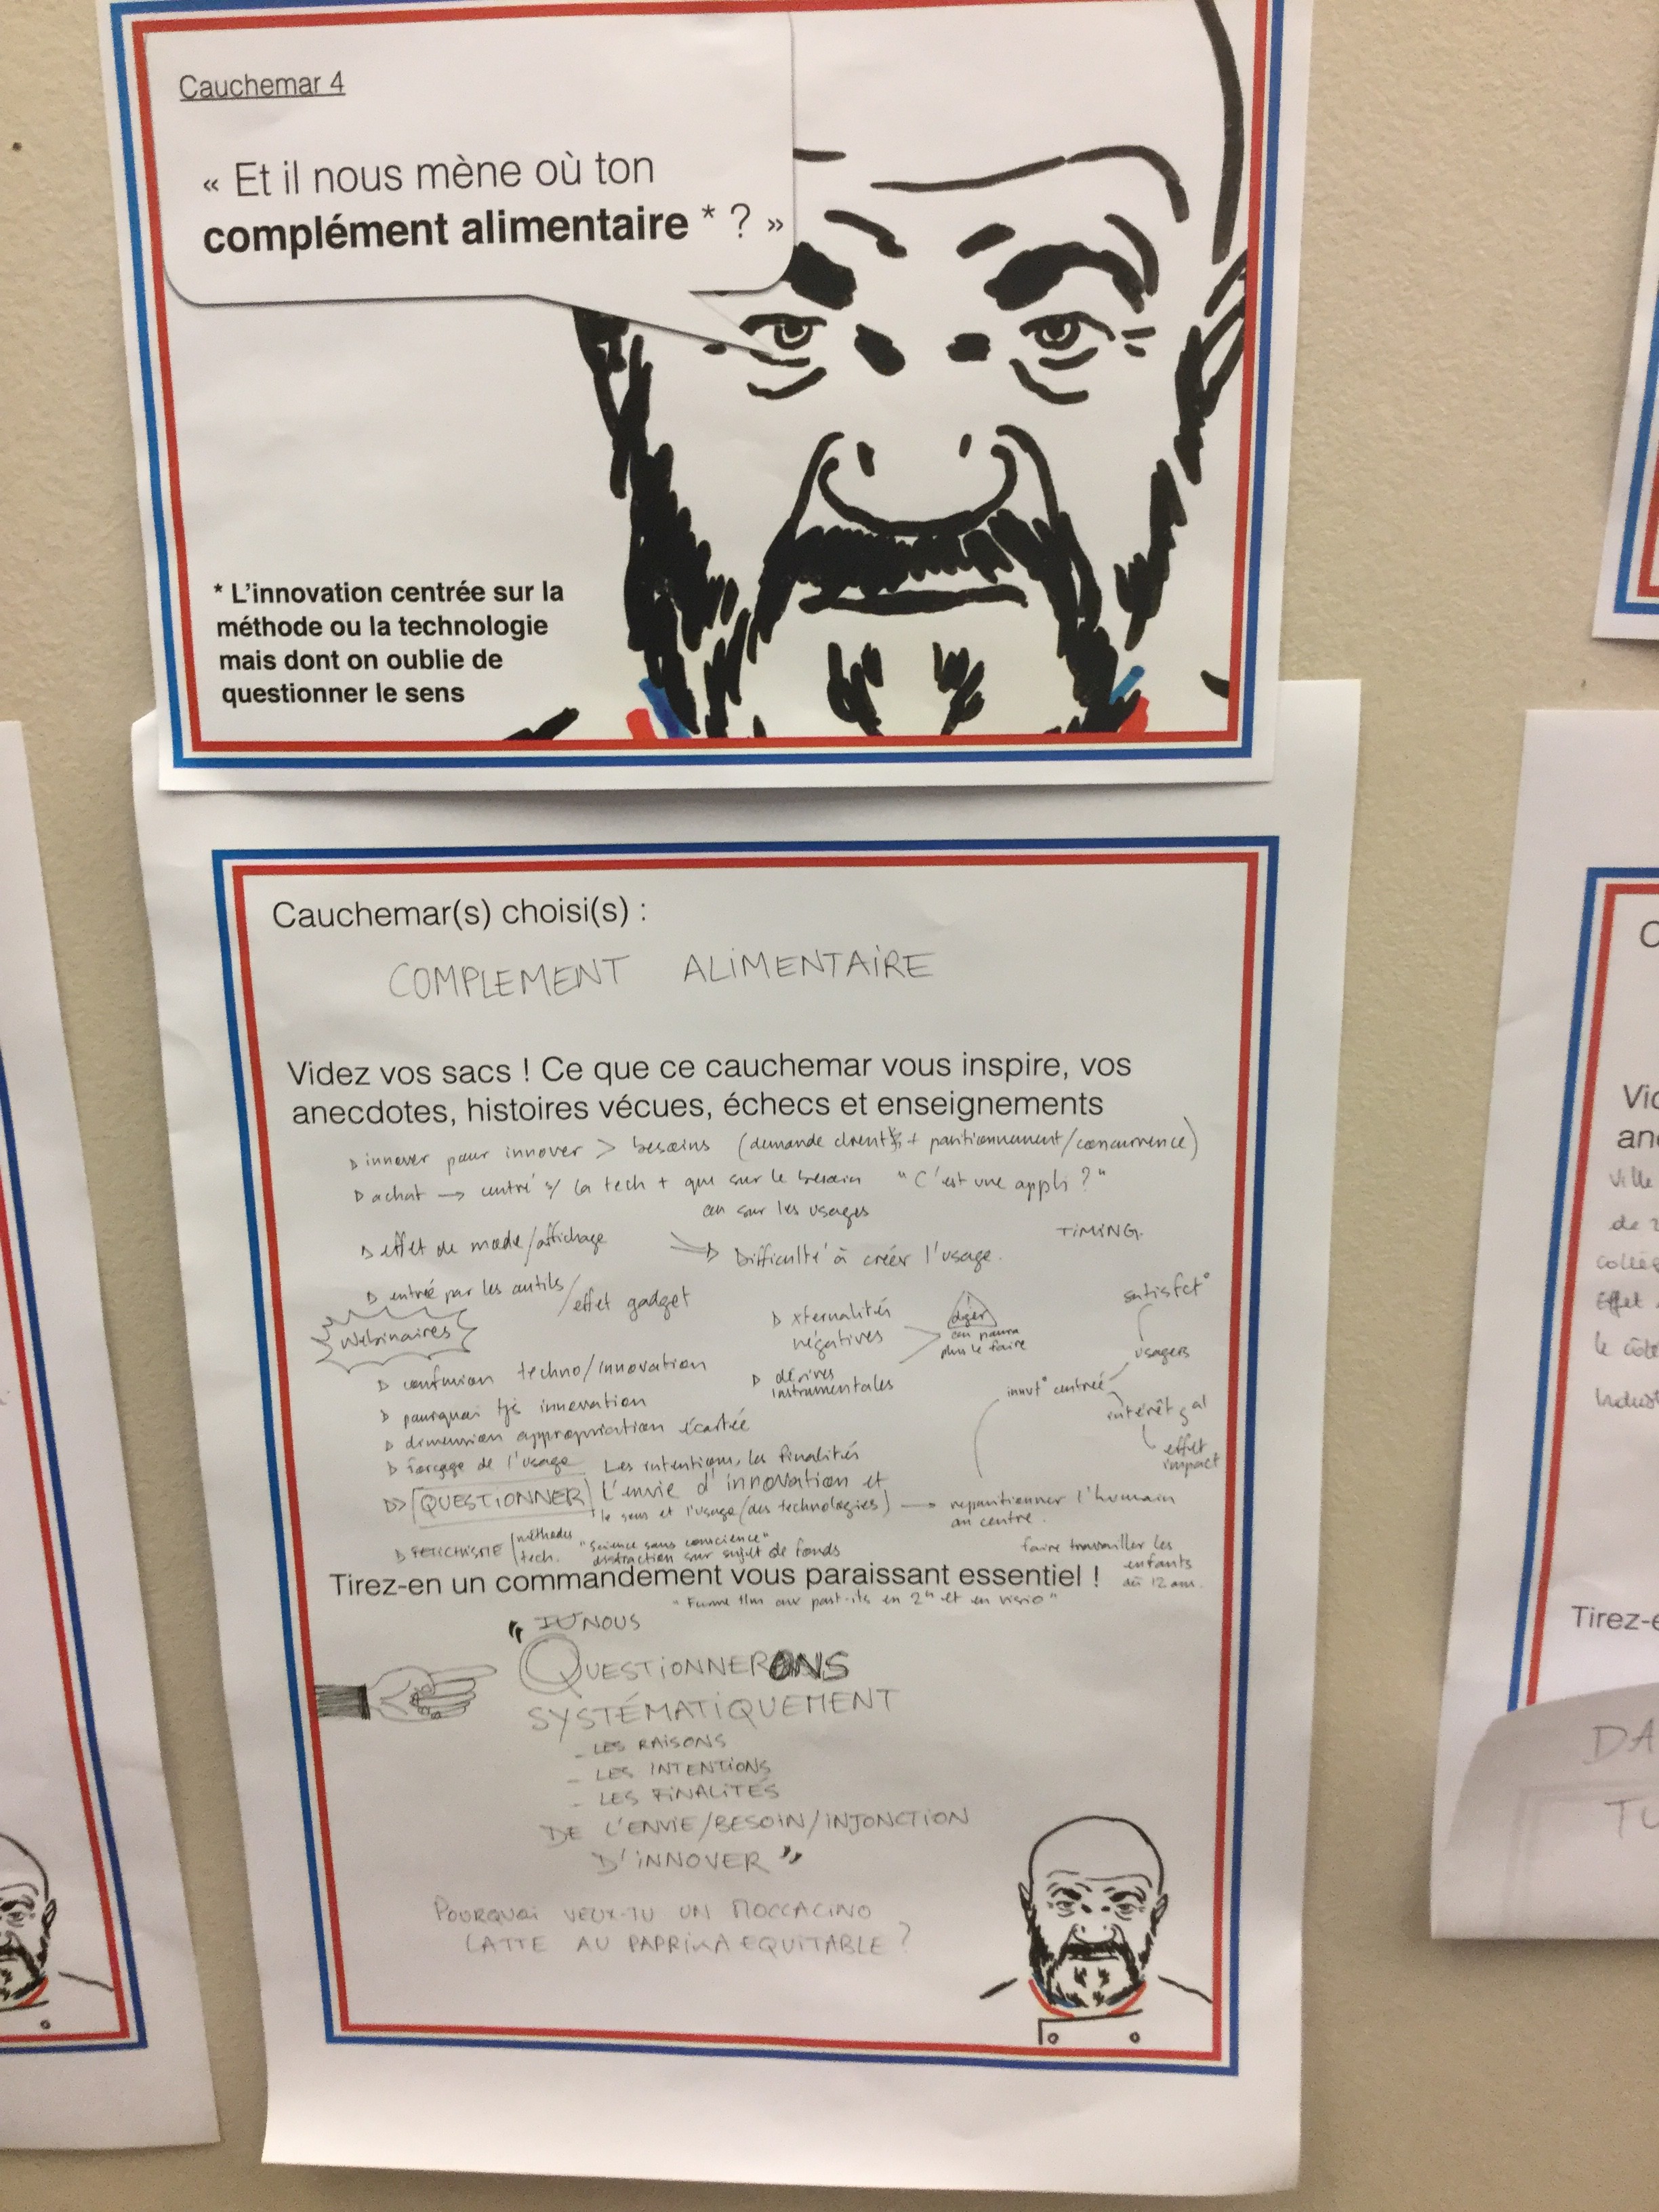 Cauchemar 4
« Et il nous mène où ton
complément alimentaire * ? »
* L'innovation centrée sur la
méthode ou la technologie
mais dont on oublie de
questionner le sens
Cauchemar(s) choisi(s) :
COMPLEMENT ALIMENTAIRE
Videz vos sacs ! Ce que ce cauchemar vous inspire, vos
anecdotes, histoires vécues, échecs et enseignements
innover pour innover > besoins (demande clients + positionnement/concurrence)
achat → centré s/ la tech + que sur le besoin "C'est une appli ?"
ou sur les usages
effet de mode/affichage
Difficulté à créer l'usage.
TIMING.
entrée par les outils/effet gadget
Webinaires
xternalités
négatives
on pourra
plus le faire
satisfct°
usagers
confusion techno/innovation
dérives
instrumentales
innovt° centrée
intérêt gal
effet
impact
pourquoi tjs innovation
dimension appropriation écartée
forçage de l'usage
Les intentions, les finalités
QUESTIONNER L'envie d'innovation et
le sens et l'usage (des technologies) → repositionner l'humain
au centre.
FETICHISME méthodes
tech.
"Science sans conscience"
distraction sur sujet de fonds
faire travailler les
enfants
dès 12 ans.
Tirez-en un commandement vous paraissant essentiel !
aux post-its en 2h et en visio"
" NOUS
QUESTIONNERONS
SYSTÉMATIQUEMENT
- LES RAISONS
- LES INTENTIONS
- LES FINALITÉS
DE L'ENVIE/BESOIN/INJONCTION
D'INNOVER "
POURQUOI VEUX-TU UN MOCCACINO
LATTE AU PAPRIKA EQUITABLE ?
Ville
de
Effet
le côté
Tirez-e
DA
TU